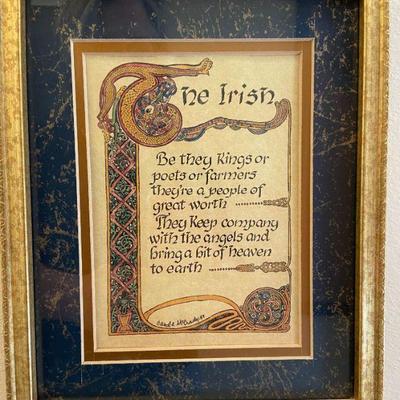 The Irish
Be they Kings or
poets or farmers
they're a people of
great worth
They Keep company
with the angels and
bring a bit of heaven
to earth